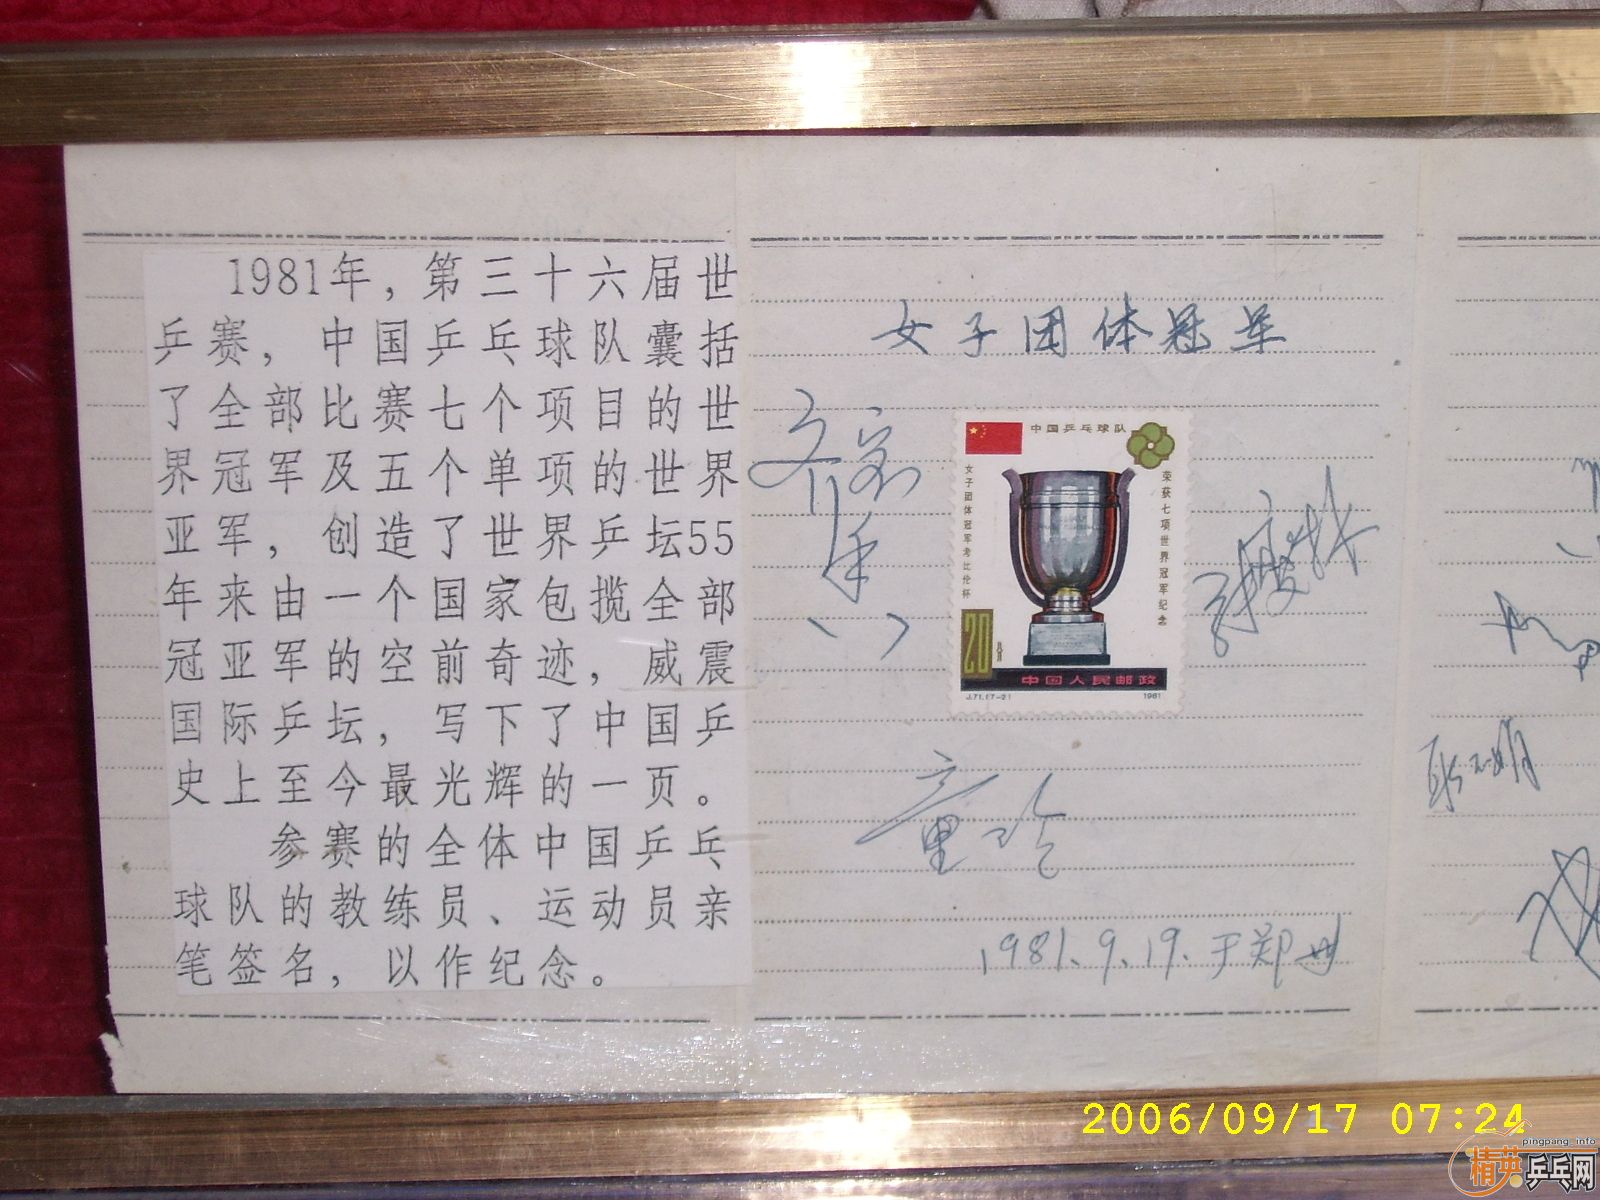 1981年，第三十六届世
乒赛，中国乒乓球队囊括
了全部比赛七个项目的世
界冠军及五个单项的世界
亚军，创造了世界乒坛55
年来由一个国家包揽全部
冠亚军的空前奇迹，威震
国际乒坛，写下了中国乒
史上至今最光辉的一页。
参赛的全体中国乒乓
球队的教练员、运动员亲
笔签名，以作纪念。
女子团体冠军
中国乒乓球队
女子团体冠军考比伦杯
荣获七项世界冠军纪念
20分
中国人民邮政
J.71.(7-2)
1981
童玲
1981.9.19.于郑州
2006/09/17 07:24
pingpang_info
精英乒乓网